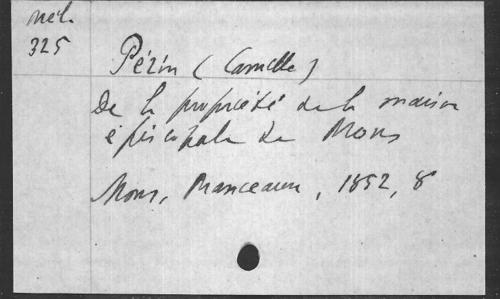 Mél.
325
Pézin (Camille)
De la propriété de la maison
épiscopale de Mons
Mons, Manceaux, 1852, 8°